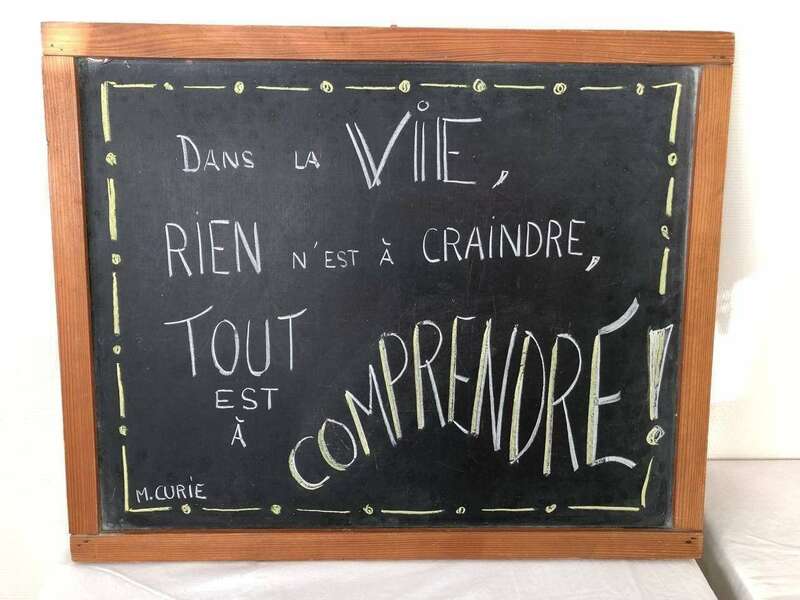 DANS LA ViE,
RIEN N'EST À CRAiNDRE,
TOUT
EST
À
COMPRENDRE!
M. CURiE